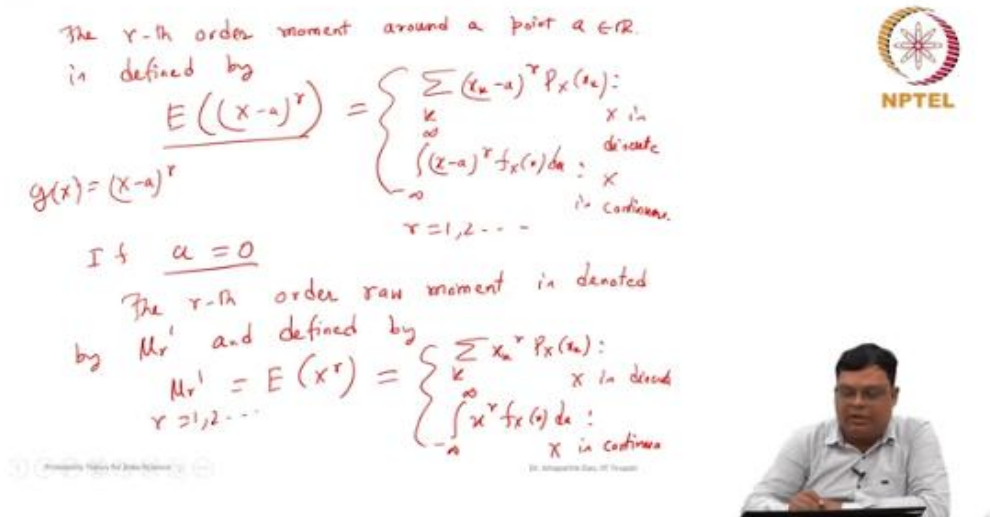 The r-th order moment around a point a ∈ IR.
is defined by
E((X-a)^r) = { Σ_k (x_k-a)^r P_X(x_k) : X is discrete
∫_{-∞}^{∞} (x-a)^r f_X(x) dx : X is continuous.
g(x) = (x-a)^r
r = 1, 2 - - -
If a = 0
The r-th order raw moment is denoted
by μ_r' and defined by
μ_r' = E(X^r) = { Σ_k x_k^r P_X(x_k) : X is discrete
∫_{-∞}^{∞} x^r f_X(x) dx : X is continuous
r = 1, 2 - - -
NPTEL
Probability Theory for Data Science